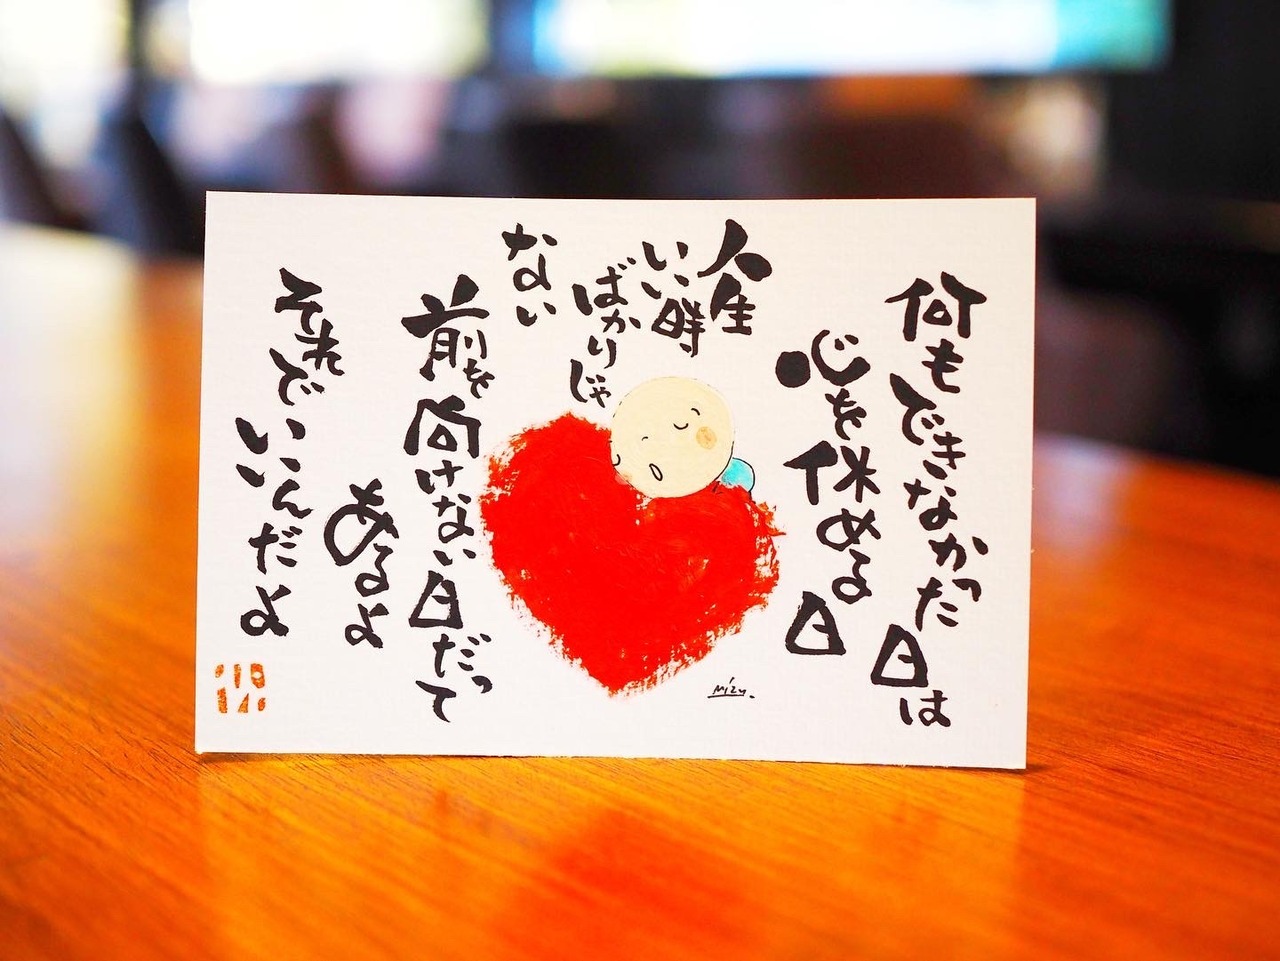 何もできなかった日は
心を休める日
人生
いい時
ばかりじゃ
ない
前を向けない日だって
あるよ
それで
いいんだよ
Mizu.